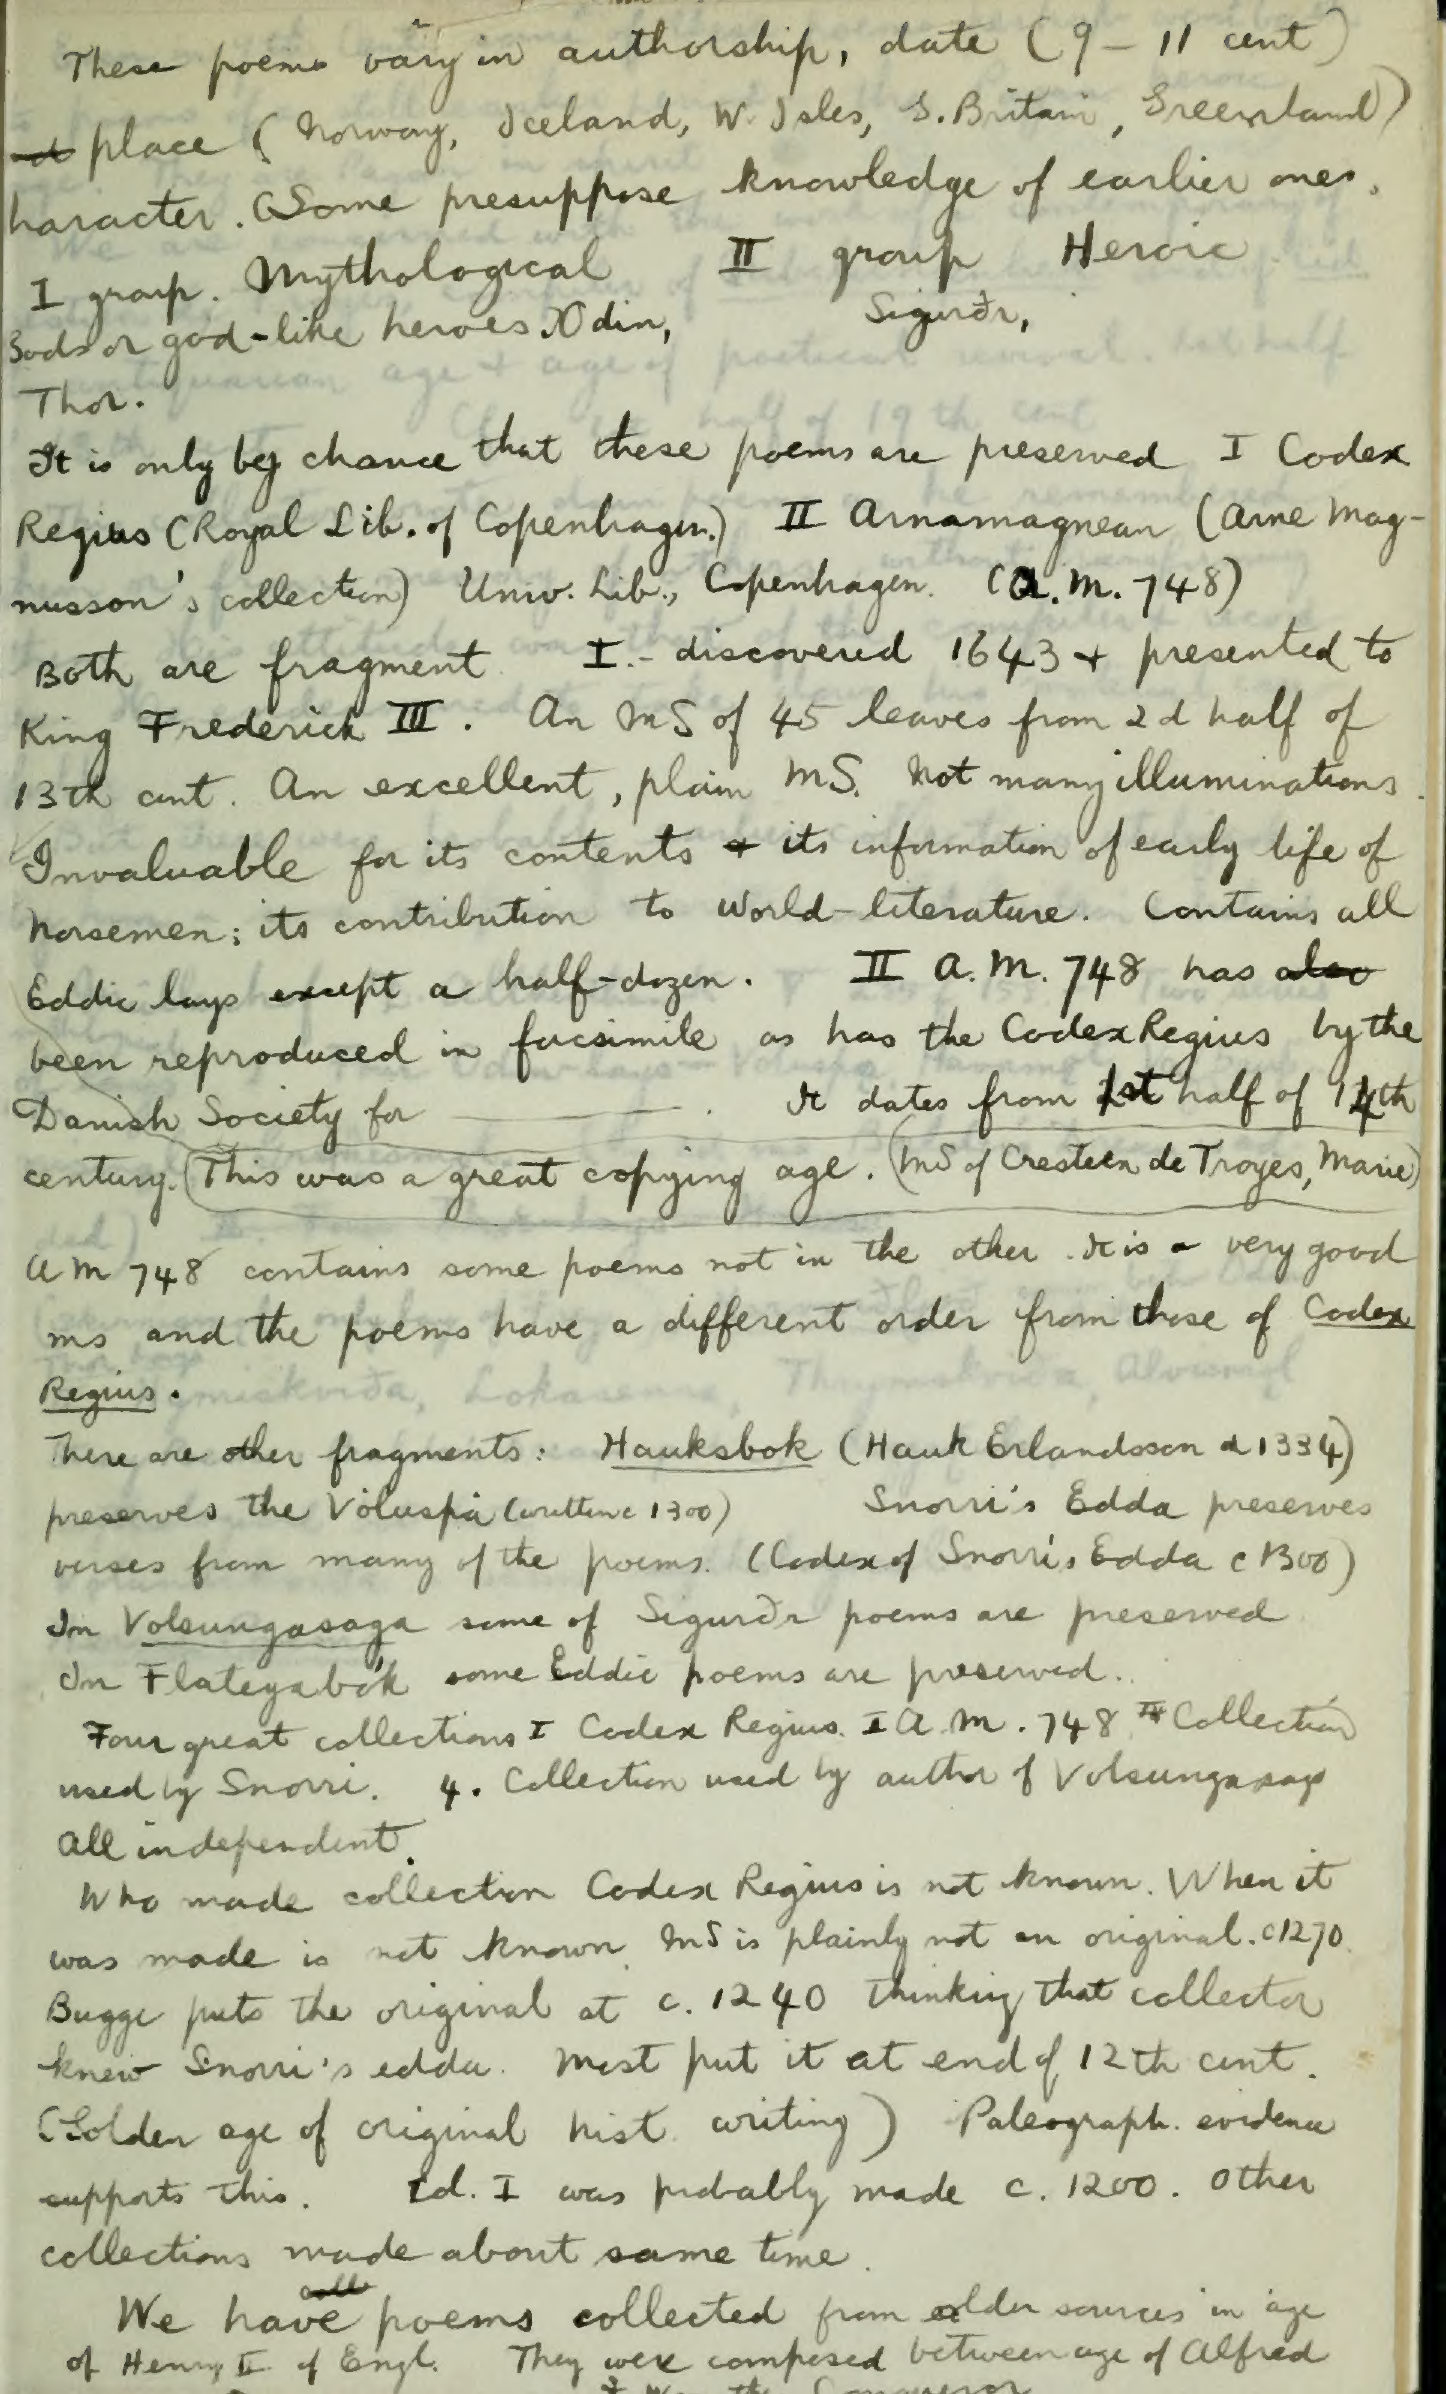 These poems vary in authorship, date (9 – 11 cent)
place (Norway, Iceland, W. Isles, S. Britain, Greenland)
haracter. Some presuppose knowledge of earlier ones.
I group. Mythological II group Heroic
Gods or god-like heroes. Odin, Sigurðr,
Thor.
It is only by chance that these poems are preserved I Codex
Regius (Royal Lib. of Copenhagen.) II Arnamagnean (Arne Mag-
nusson's collection) Univ. Lib., Copenhagen. (A.M. 748)
Both are fragment I.- discovered 1643 + presented to
King Frederick III. An MS of 45 leaves from 2d half of
13th cent. An excellent, plain MS. Not many illuminations.
Invaluable for its contents + its information of early life of
Norsemen; its contribution to world-literature. Contains all
Eddic lays except a half-dozen. II A.M. 748 has also
been reproduced in facsimile as has the Codex Regius by the
Danish Society for ———. It dates from 1st half of 14th
century. (This was a great copying age. (MS of Cresteen de Troyes, Marie)
AM 748 contains some poems not in the other. It is a very good
ms and the poems have a different order from those of Codex
Regius.
There are other fragments: Hauksbok (Hauk Erlandsson d 1334)
preserves the Völuspá (written c 1300) Snorri's Edda preserves
verses from many of the poems. (Codex of Snorri's Edda c 1300)
In Volsungasaga some of Sigurðr poems are preserved
In Flateyabók some Eddic poems are preserved.
Four great collections I Codex Regius. I A.M. 748 III Collection
used by Snorri. 4. Collection used by author of Volsungasaga
All independent.
Who made collection Codex Regius is not known. When it
was made is not known. MS is plainly not an original. c1270.
Bugge puts the original at c. 1240 thinking that collector
knew Snorri's edda. Most put it at end of 12th cent.
(Golden age of original hist. writing) Paleograph. evidence
supports this. Ed. I was probably made c. 1200. Other
collections made about same time.
We have poems collected from older sources in age
of Henry II of Engl. They were composed between age of Alfred
the Conqueror